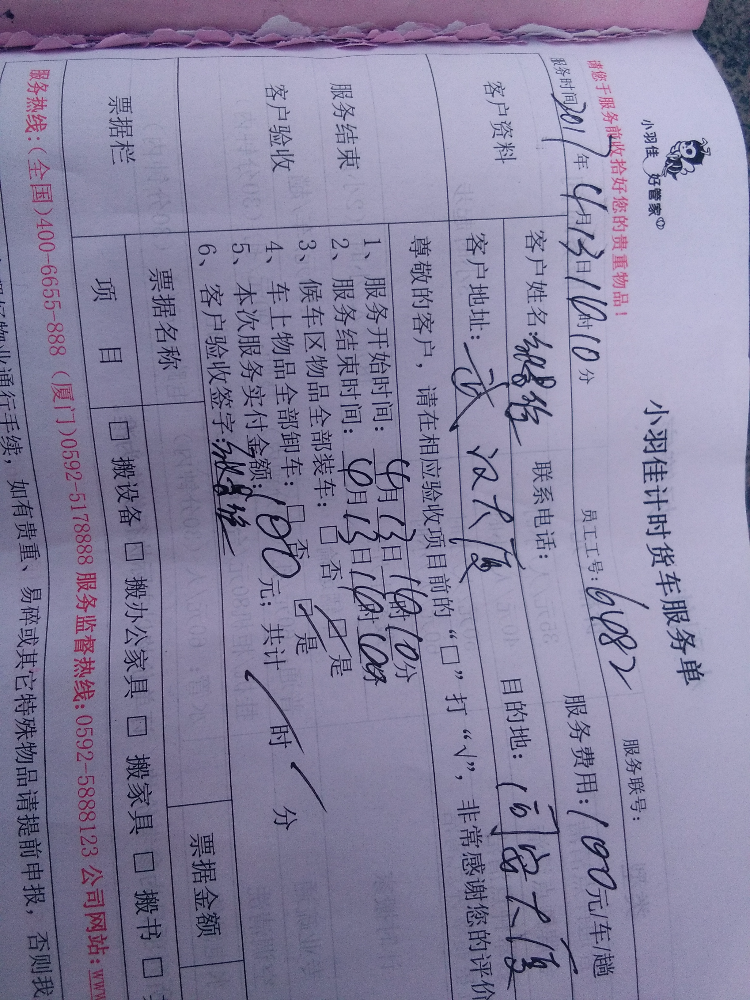 小羽佳 好管家
小羽佳计时货车服务单
请您于服务前收拾好您的贵重物品！
员工工号：6482
服务联号：
服务时间2017年4月13日16时10分
服务费用：100元/车/趟
客户资料
客户姓名：
联系电话：
客户地址：武汉大厦
目的地：大厦
尊敬的客户，请在相应验收项目前的“□”打“√”，非常感谢您的评价
服务结束
客户验收
1、服务开始时间：4月13日16时10分
2、服务结束时间：4月13日16时分
3、候车区物品全部装车：□否 □是
4、车上物品全部卸车：□否 □是
5、本次服务实付金额：100元；共计 时 分
6、客户验收签字：
票据栏
票据名称
票据金额
项 目
□ 搬设备 □ 搬办公家具 □ 搬家具 □ 搬书 □
服务热线：（全国）400-6655-888 （厦门）0592-5178888 服务监督热线：0592-5888123 公司网站：www
物业通行手续，如有贵重、易碎或其它特殊物品请提前申报，否则我